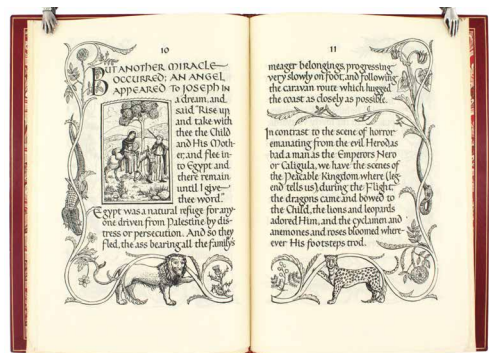 10
BUT ANOTHER MIRACLE
OCCURRED: AN ANGEL
APPEARED TO JOSEPH IN
a dream, and
said "Rise up
and take with
thee the Child
and His Moth-
er, and flee in-
to Egypt and
there remain
until I give
thee word."
Egypt was a natural refuge for any-
one driven from Palestine by dis-
tress or persecution. And so they
fled, the ass bearing all the family's
11
meager belongings, progressing
very slowly on foot, and following
the caravan route which hugged
the coast as closely as possible.
In contrast to the scene of horror
emanating from the evil Herod, as
bad a man as the Emperors Nero
or Caligula, we have the scenes of
the Peacable Kingdom where (leg-
end tells us), during the Flight,
the dragons came and bowed to
the Child, the lions and leopards
adored Him, and the cyclamen and
anemones and roses bloomed wher-
ever His footsteps trod.